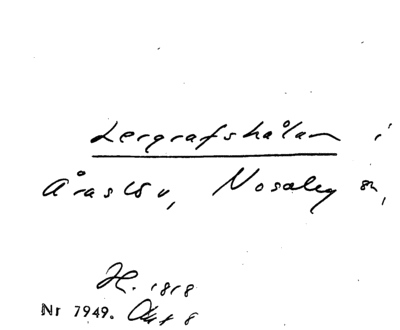 Lergrafshålan i
Åraslöv, Nosaby sn,
H. 1818
Nr 7949. Okt 8